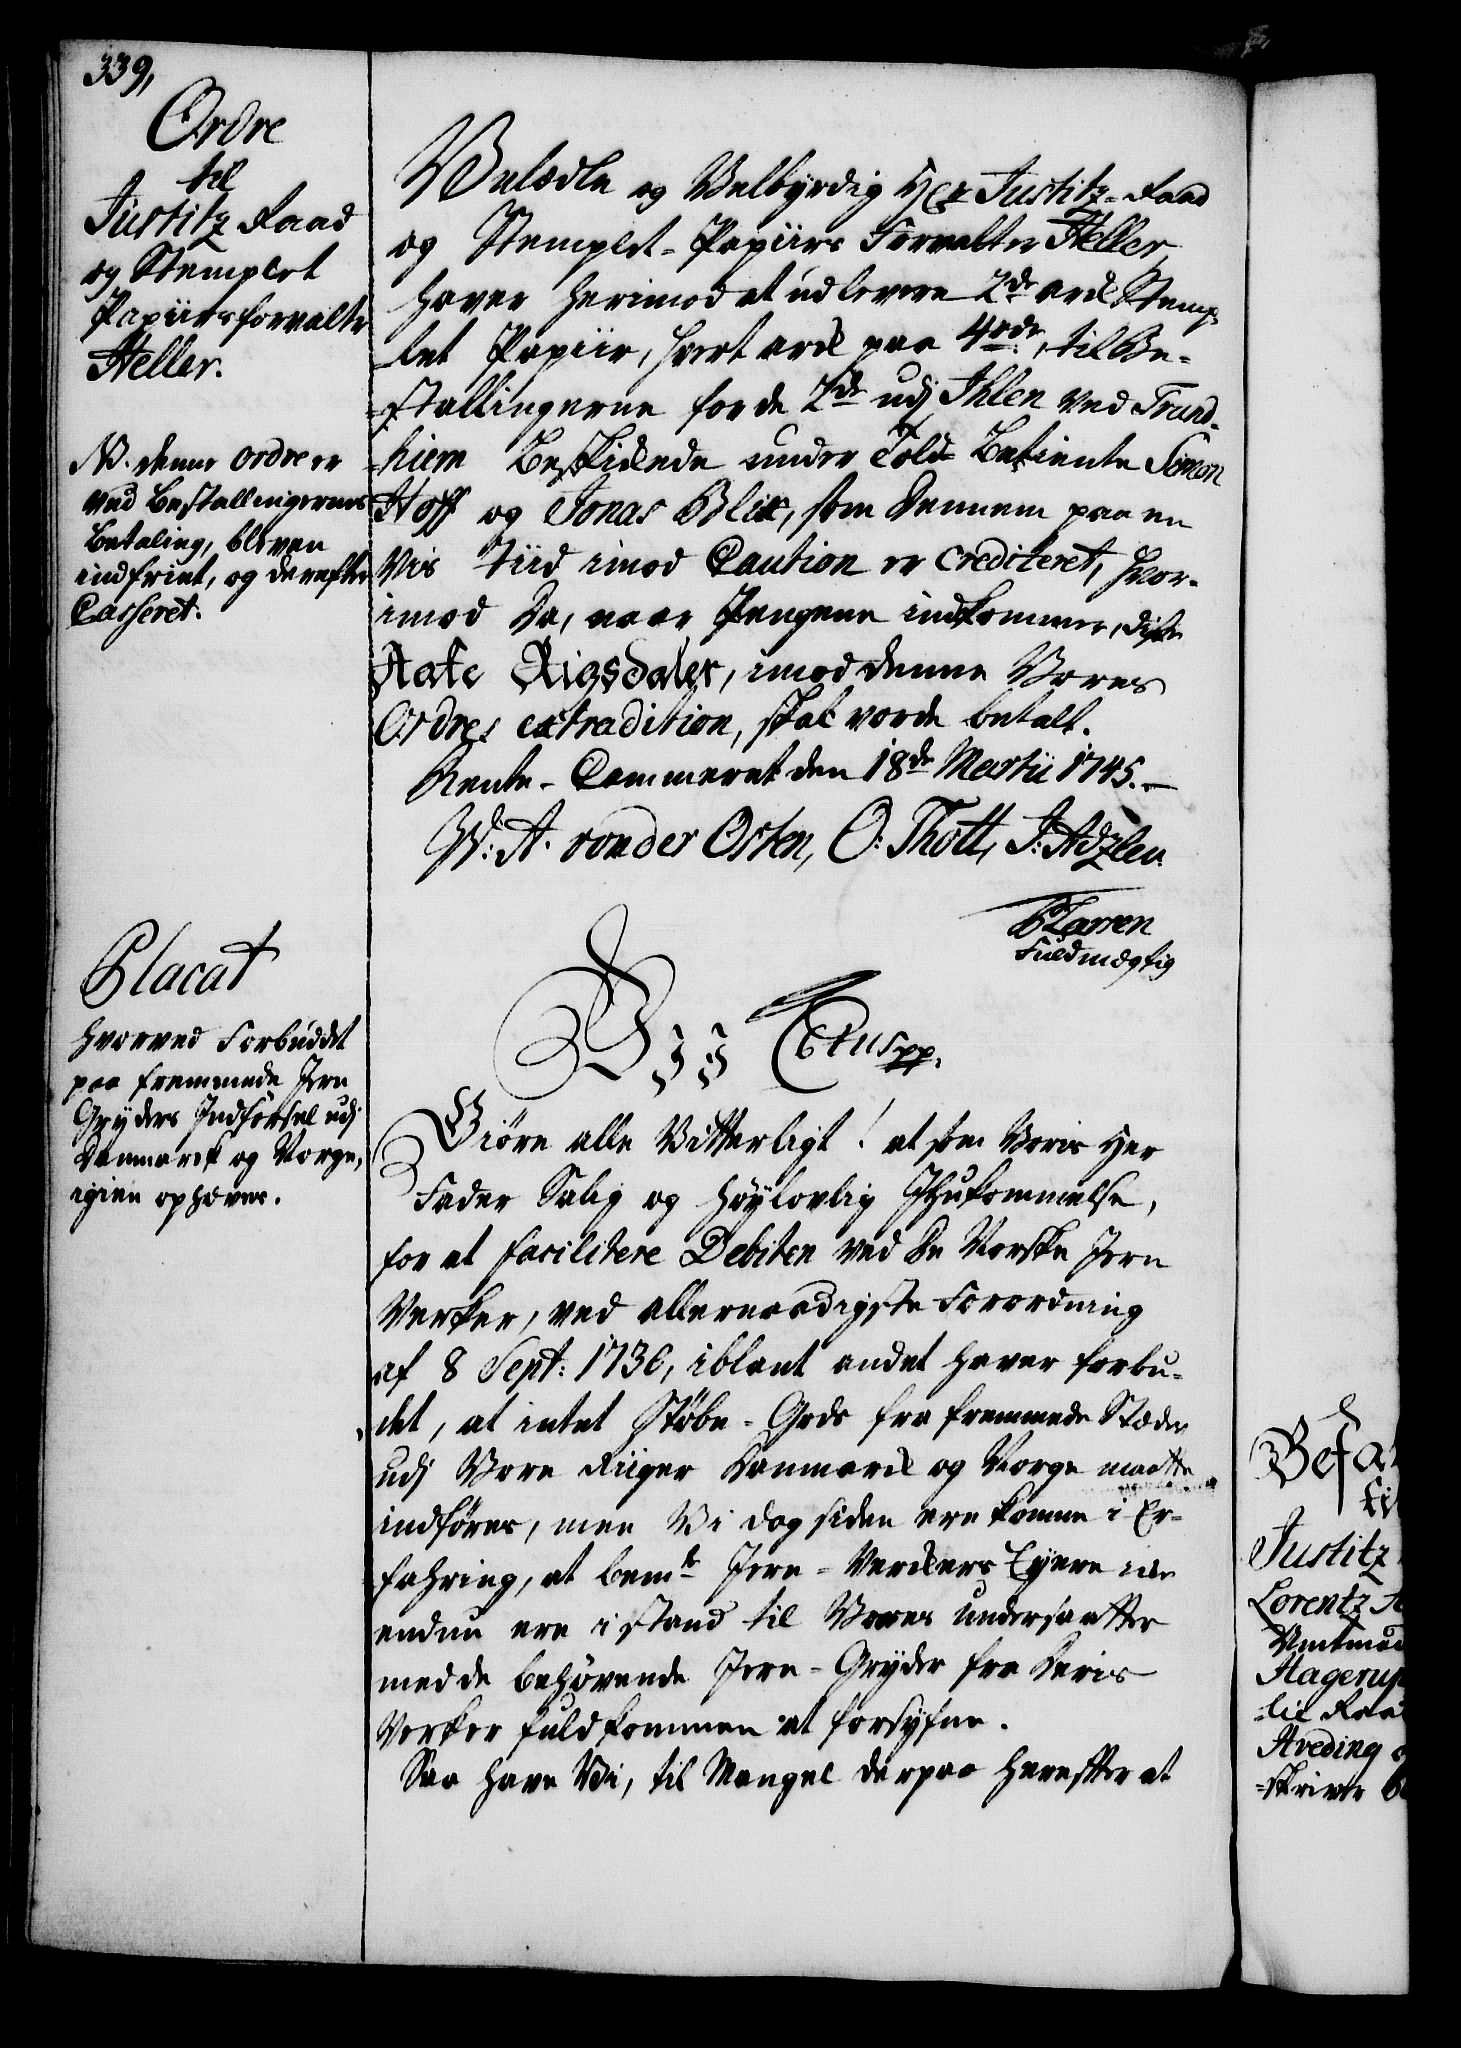 339,
Ordre
til
Justitz Raad
og Stemplet
Papiirsforvalter
Heller.
NB. denne ordre er
ved Bestallingernes
Betaling, bleven
indfriet, og derefter
Casseret.
Velædle og Velbyrdig Her Justitz-Raad
og Stemplet-Papiirs Forvalter Heller
haver herimod at udlevere 2de ark Stemp-
let Papiir, hvert ark paa 4 rdr, til Be-
stallingerne for de 2de udj Ihlen ved Trund-
hiem Beskikkede under Told-Betiente Simon
Hoff og Jonas Blix, som dennem paa en
vis tiid imod Caution er crediteret, hvor-
imod De, naar Pengene indkommer, disse
Aate Rigsdaler, imod denne Vores
Ordres extradition, skal vorde betalt.
Rente-Cammeret den 18de Martii 1745.
W: A. von der Osten, O: Thott, J: Adzlew.
Larsen
Fuldmægtig
Placat
hvorved Forbuddet
paa fremmede Jern
Gryders Indførsel udj
Danmark og Norge,
igien ophæves.
Vii Christianus Sextus pp.
Giøre alle Vitterligt! at som Voris Her
Fader Salig og Høylovlig Ihukommelse,
for at facilitere Debiten ved de Norske Jern
Verker, ved allernaadigste Forordning
af 8 Sept: 1730, iblant andet haver forbu-
det, at intet Støbe-Gods fra fremmede Stæder
udj Vore Riiger Danmark og Norge maatte
indføres, men Vi dog siden ere komne i Er-
fahring, at bemte Jern-Verkers Eyere ikke
endnu ere i stand til Vores undersaatter
med de behøvende Jern-Gryder fra deris
Verker fuldkommen at forsyne.
Saa have Vi, til Mangel derpaa herefter at
Befa
til
Justitz
Lorentz
Amtmæ
Hagerup
lie Raa
Areding
-skriver